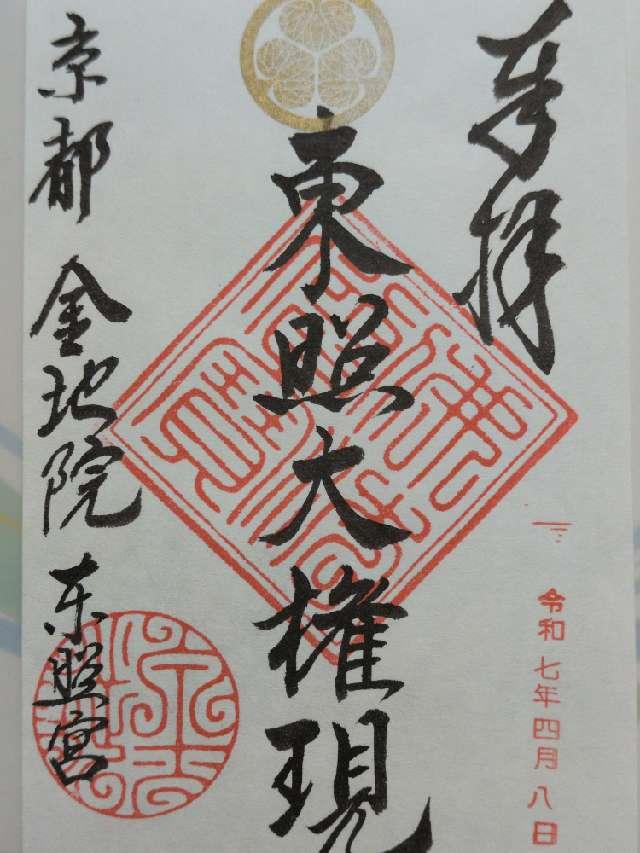 奉拝
令和七年四月八日
東照大権現
京都 金地院 东照宮